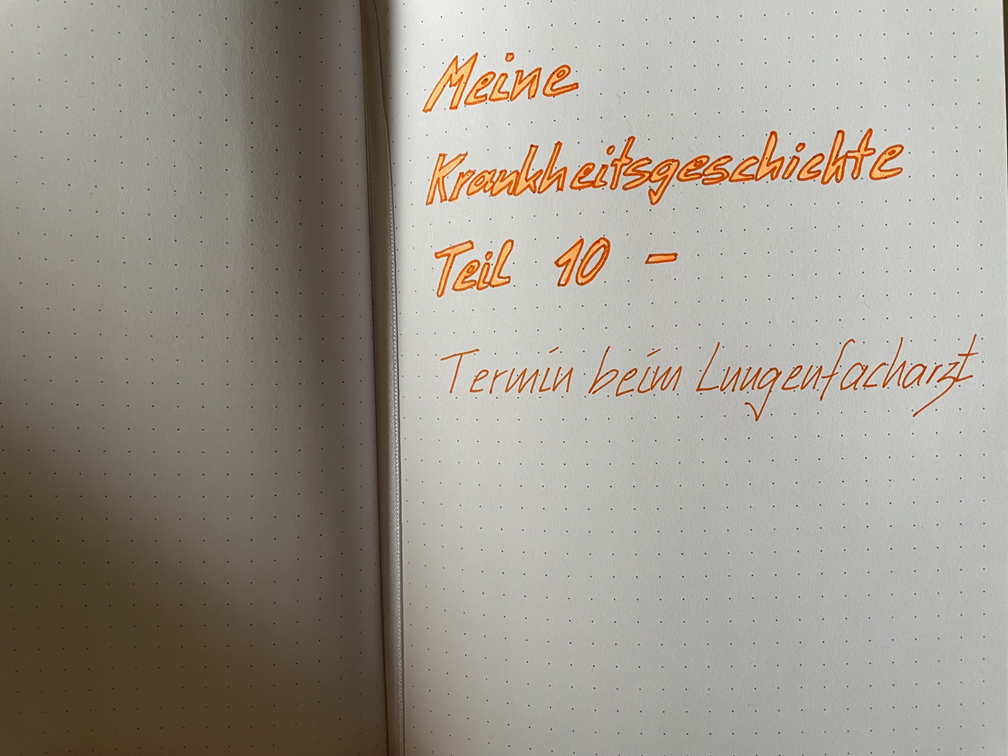 Meine
Krankheitsgeschichte
Teil 10 -
Termin beim Lungenfacharzt